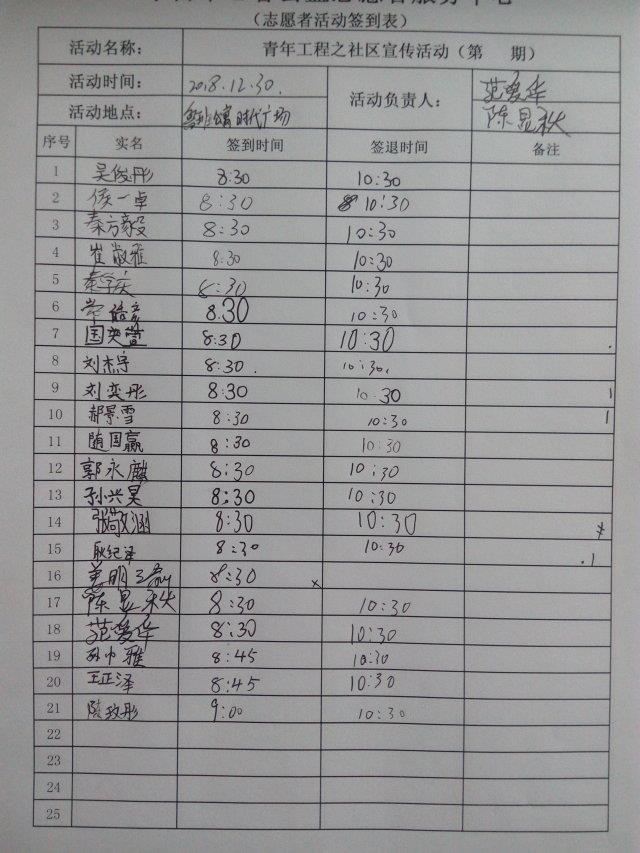 （志愿者活动签到表）
活动名称： 青年工程之社区宣传活动（第 期）
活动时间： 2018.12.30. 活动负责人： 范爱华
活动地点： 时代广场 陈显秋
序号 实名 签到时间 签退时间 备注
1 吴俊彤 8:30 10:30
2 侯一卓 8:30 10:30
3 秦方毅 8:30 10:30
4 崔淑雅 8:30 10:30
5 8:30 10:30
6 8:30 10:30
7 国奕萱 8:30 10:30
8 刘杰宇 8:30. 10:30.
9 刘奕彤 8:30 10:30
10 郝景雪 8:30 10:30
11 随国赢 8:30 10:30
12 郭永麟 8:30 10:30
13 孙兴昊 8:30 10:30
14 张敬涵 8:30 10:30
15 耿纪泽 8:30 10:30
16 8:30 ×
17 陈显秋 8:30 10:30
18 范爱华 8:30 10:30
19 孙巾雅 8:45 10:30
20 王正泽 8:45 10:30
21 陵玫彤 9:00 10:30
22
23
24
25